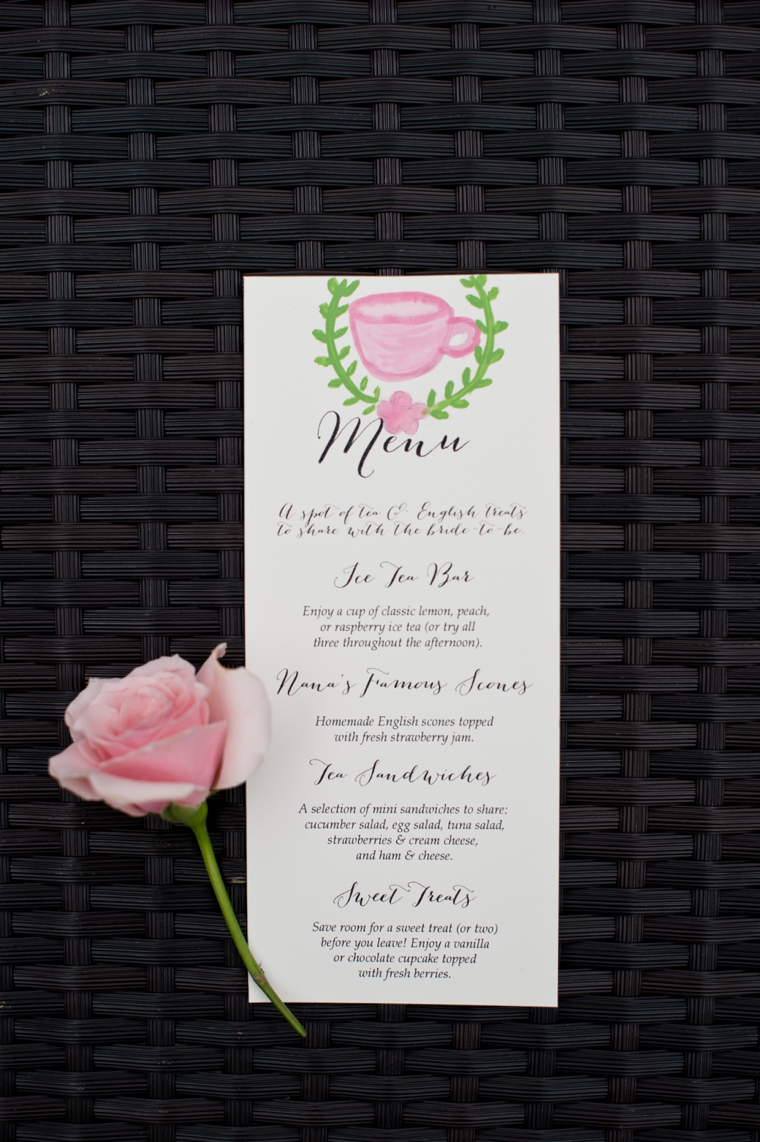 Menu
A spot of tea & English treats
to share with the bride-to-be.
Ice Tea Bar
Enjoy a cup of classic lemon, peach,
or raspberry ice tea (or try all
three throughout the afternoon).
Nana's Famous Scones
Homemade English scones topped
with fresh strawberry jam.
Tea Sandwiches
A selection of mini sandwiches to share:
cucumber salad, egg salad, tuna salad,
strawberries & cream cheese,
and ham & cheese.
Sweet Treats
Save room for a sweet treat (or two)
before you leave! Enjoy a vanilla
or chocolate cupcake topped
with fresh berries.